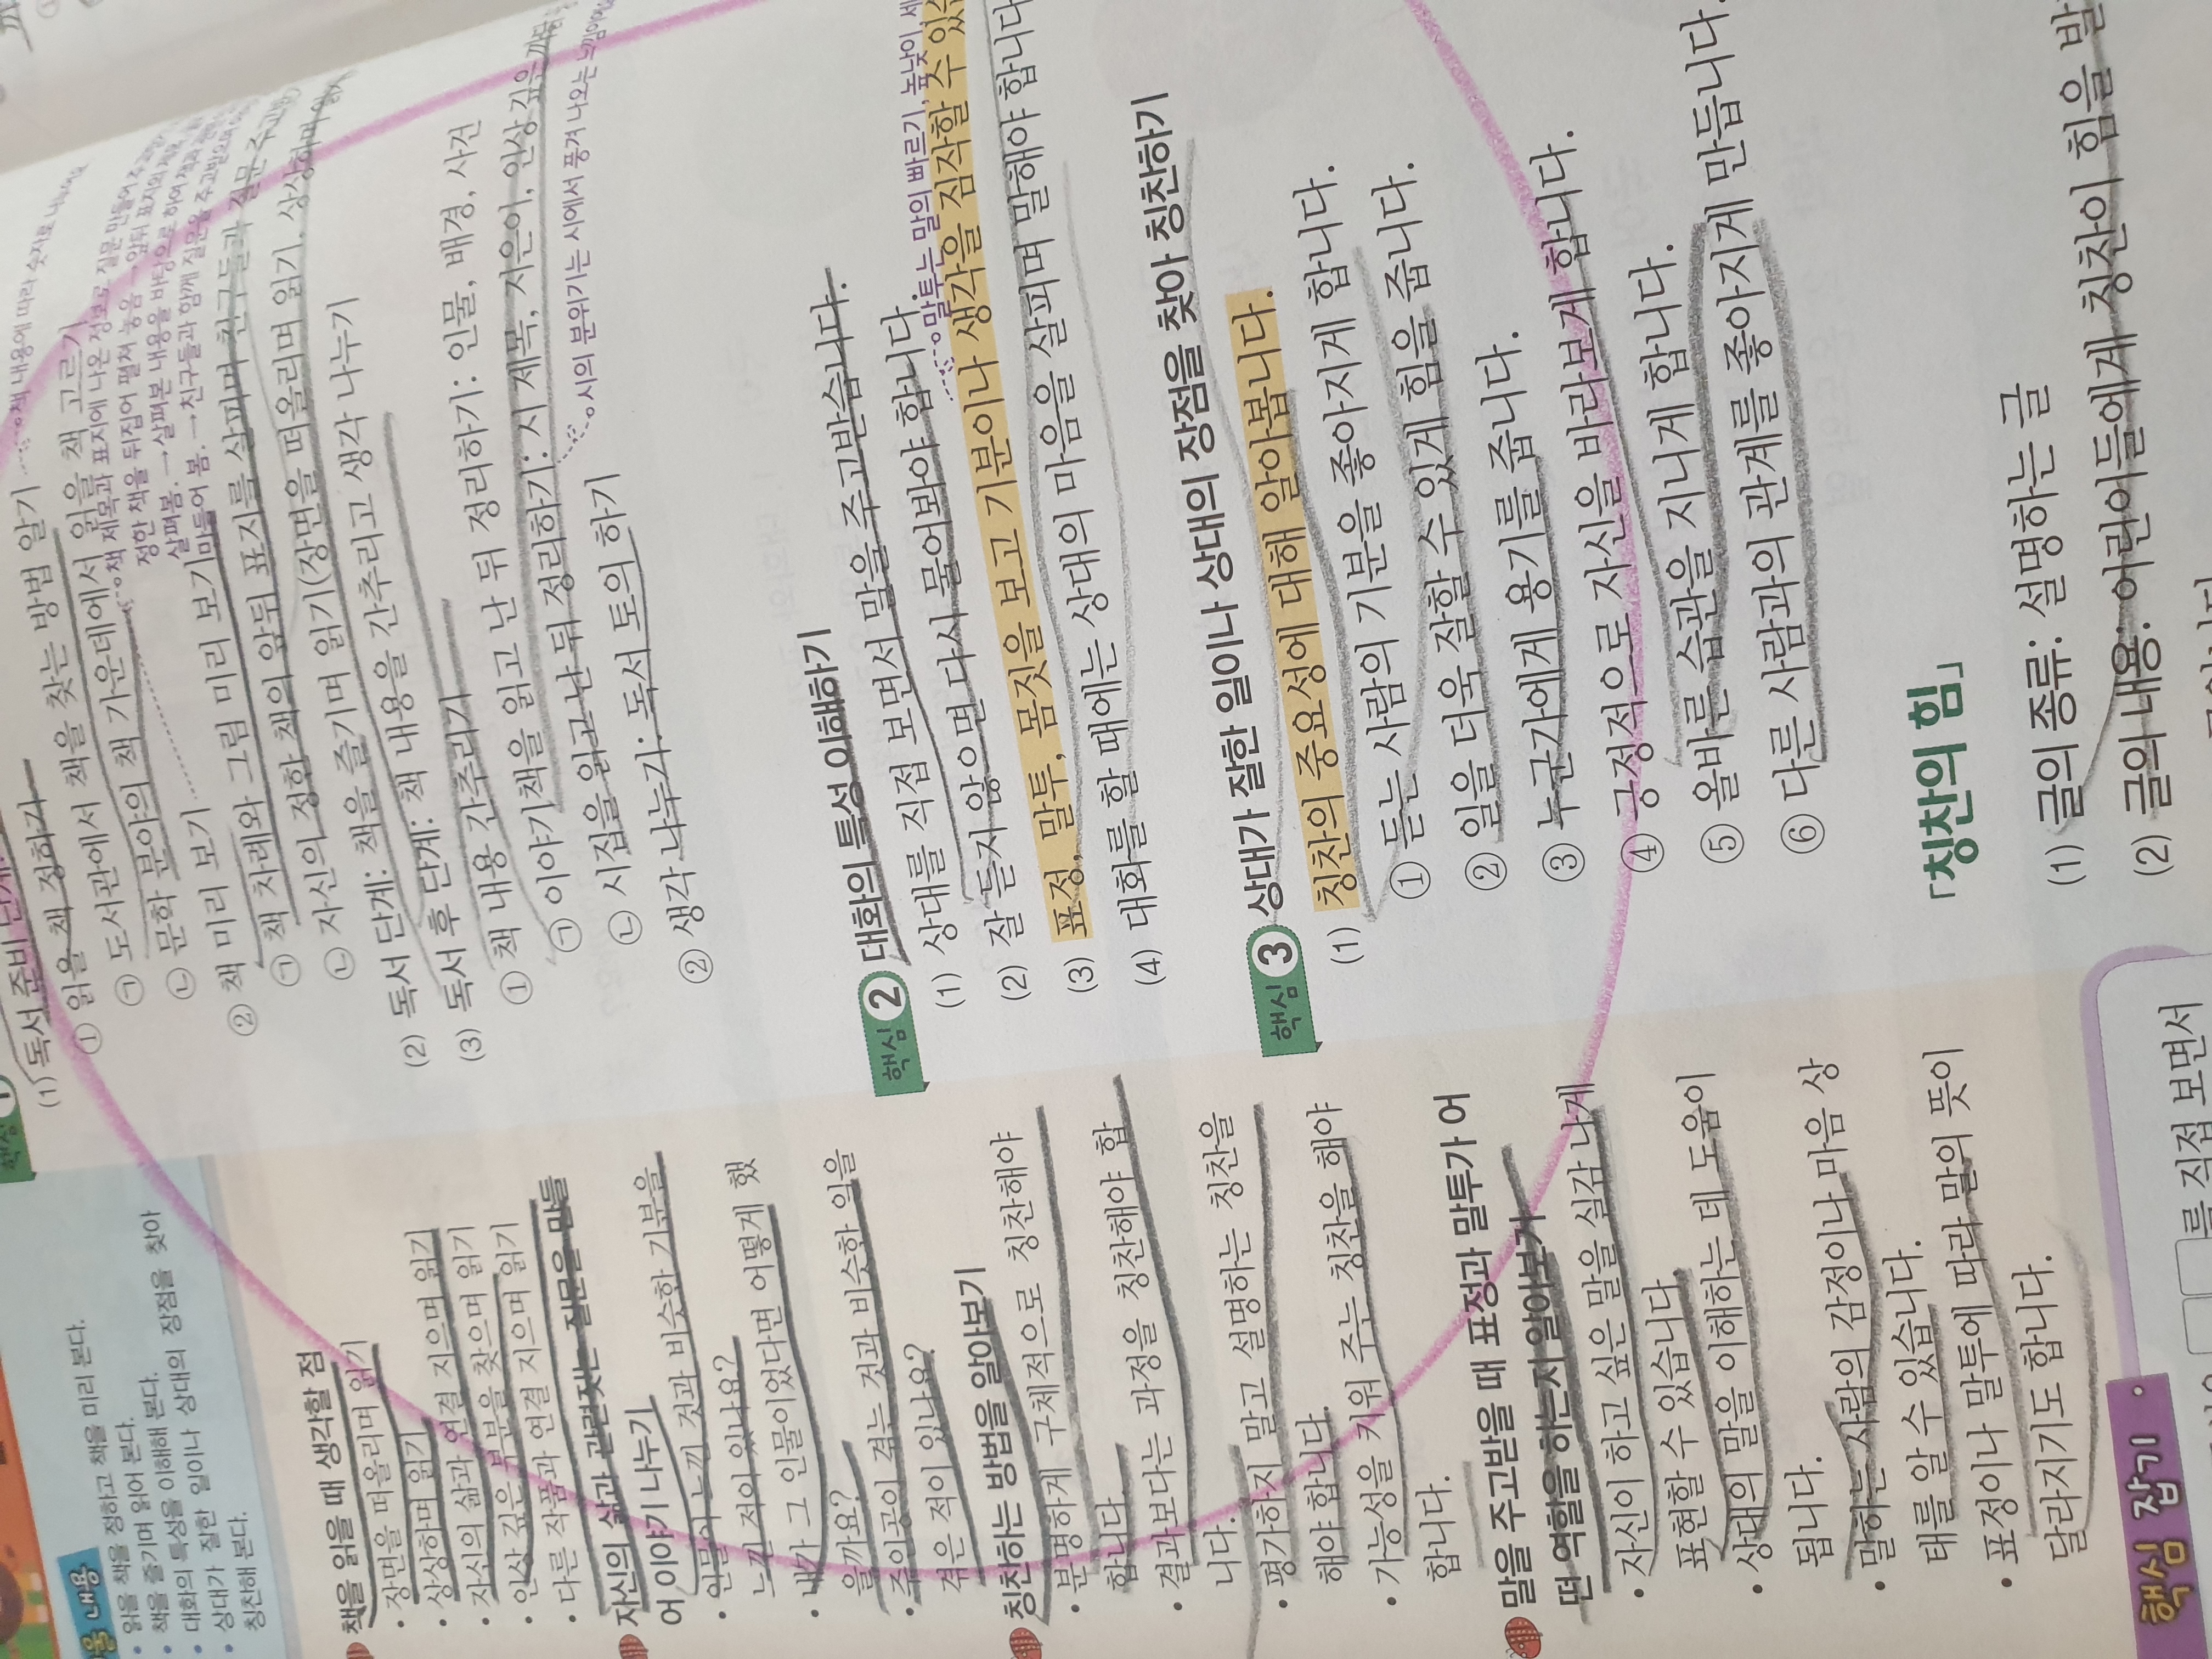 배울 내용
• 읽을 책을 정하고 책을 미리 본다.
• 책을 즐기며 읽어 본다.
• 대화의 특성을 이해해 본다.
• 상대가 잘한 일이나 상대의 장점을 찾아
칭찬해 본다.
책을 읽을 때 생각할 점
• 장면을 떠올리며 읽기
• 상상하며 읽기
• 자신의 삶과 연결 지으며 읽기
• 인상 깊은 부분을 찾으며 읽기
• 다른 작품과 연결 지으며 읽기
자신의 삶과 관련짓는 질문을 만들
어 이야기 나누기
• 인물이 느낀 것과 비슷한 기분을
느낀 적이 있나요?
• 내가 그 인물이었다면 어떻게 했
을까요?
• 주인공이 겪는 것과 비슷한 일을
겪은 적이 있나요?
칭찬하는 방법을 알아보기
• 분명하게 구체적으로 칭찬해야
합니다.
• 결과보다는 과정을 칭찬해야 합
니다.
• 평가하지 말고 설명하는 칭찬을
해야 합니다.
• 가능성을 키워 주는 칭찬을 해야
합니다.
말을 주고받을 때 표정과 말투가 어
떤 역할을 하는지 알아보기
• 자신이 하고 싶은 말을 실감 나게
표현할 수 있습니다.
• 상대의 말을 이해하는 데 도움이
됩니다.
• 말하는 사람의 감정이나 마음 상
태를 알 수 있습니다.
• 표정이나 말투에 따라 말의 뜻이
달라지기도 합니다.
핵심 1
(1) 독서 준비 단계:
① 읽을 책 정하기
㉠ 도서관에서 책을 찾는 방법 알기
책 내용에 따라 숫자로
㉡ 문학 분야의 책 가운데에서 읽을 책 고르기
책 제목과 표지에 나온 정보로 질문 만들어
정한 책을 뒤집어 펼쳐 놓음. → 앞뒤 표지와 제목
살펴봄. → 살펴본 내용을 바탕으로 하여
만들어 봄. → 친구들과 함께 질문을 주고받으며
② 책 미리 보기
㉠ 책 차례와 그림 미리 보기
㉡ 자신의 정한 책의 앞뒤 표지를 살피며 친구들과 질문 주고받기
(2) 독서 단계: 책을 즐기며 읽기(장면을 떠올리며 읽기, 상상하며 읽기
(3) 독서 후 단계: 책 내용을 간추리고 생각 나누기
① 책 내용 간추리기
㉠ 이야기책을 읽고 난 뒤 정리하기: 인물, 배경, 사건
㉡ 시집을 읽고 난 뒤 정리하기: 시 제목, 지은이, 인상 깊은
시의 분위기는 시에서 풍겨 나오는 느낌이에요
② 생각 나누기: 독서 토의 하기
핵심 2 대화의 특성 이해하기
(1) 상대를 직접 보면서 말을 주고받습니다.
(2) 잘 듣지 않으면 다시 물어봐야 합니다.
말투는 말의 빠르기, 높낮이, 세
(3) 표정, 말투, 몸짓을 보고 기분이나 생각을 짐작할 수 있
(4) 대화를 할 때에는 상대의 마음을 살피며 말해야 합니다
핵심 3 상대가 잘한 일이나 상대의 장점을 찾아 칭찬하기
(1) 칭찬의 중요성에 대해 알아봅니다.
① 듣는 사람의 기분을 좋아지게 합니다.
② 일을 더욱 잘할 수 있게 힘을 줍니다.
③ 누군가에게 용기를 줍니다.
④ 긍정적으로 자신을 바라보게 합니다.
⑤ 올바른 습관을 지니게 합니다.
⑥ 다른 사람과의 관계를 좋아지게 만듭니다.
「칭찬의 힘」
(1) 글의 종류: 설명하는 글
(2) 글의 내용: 어린이들에게 칭찬이 힘을 발
핵심 잡기
를 직접 보면서